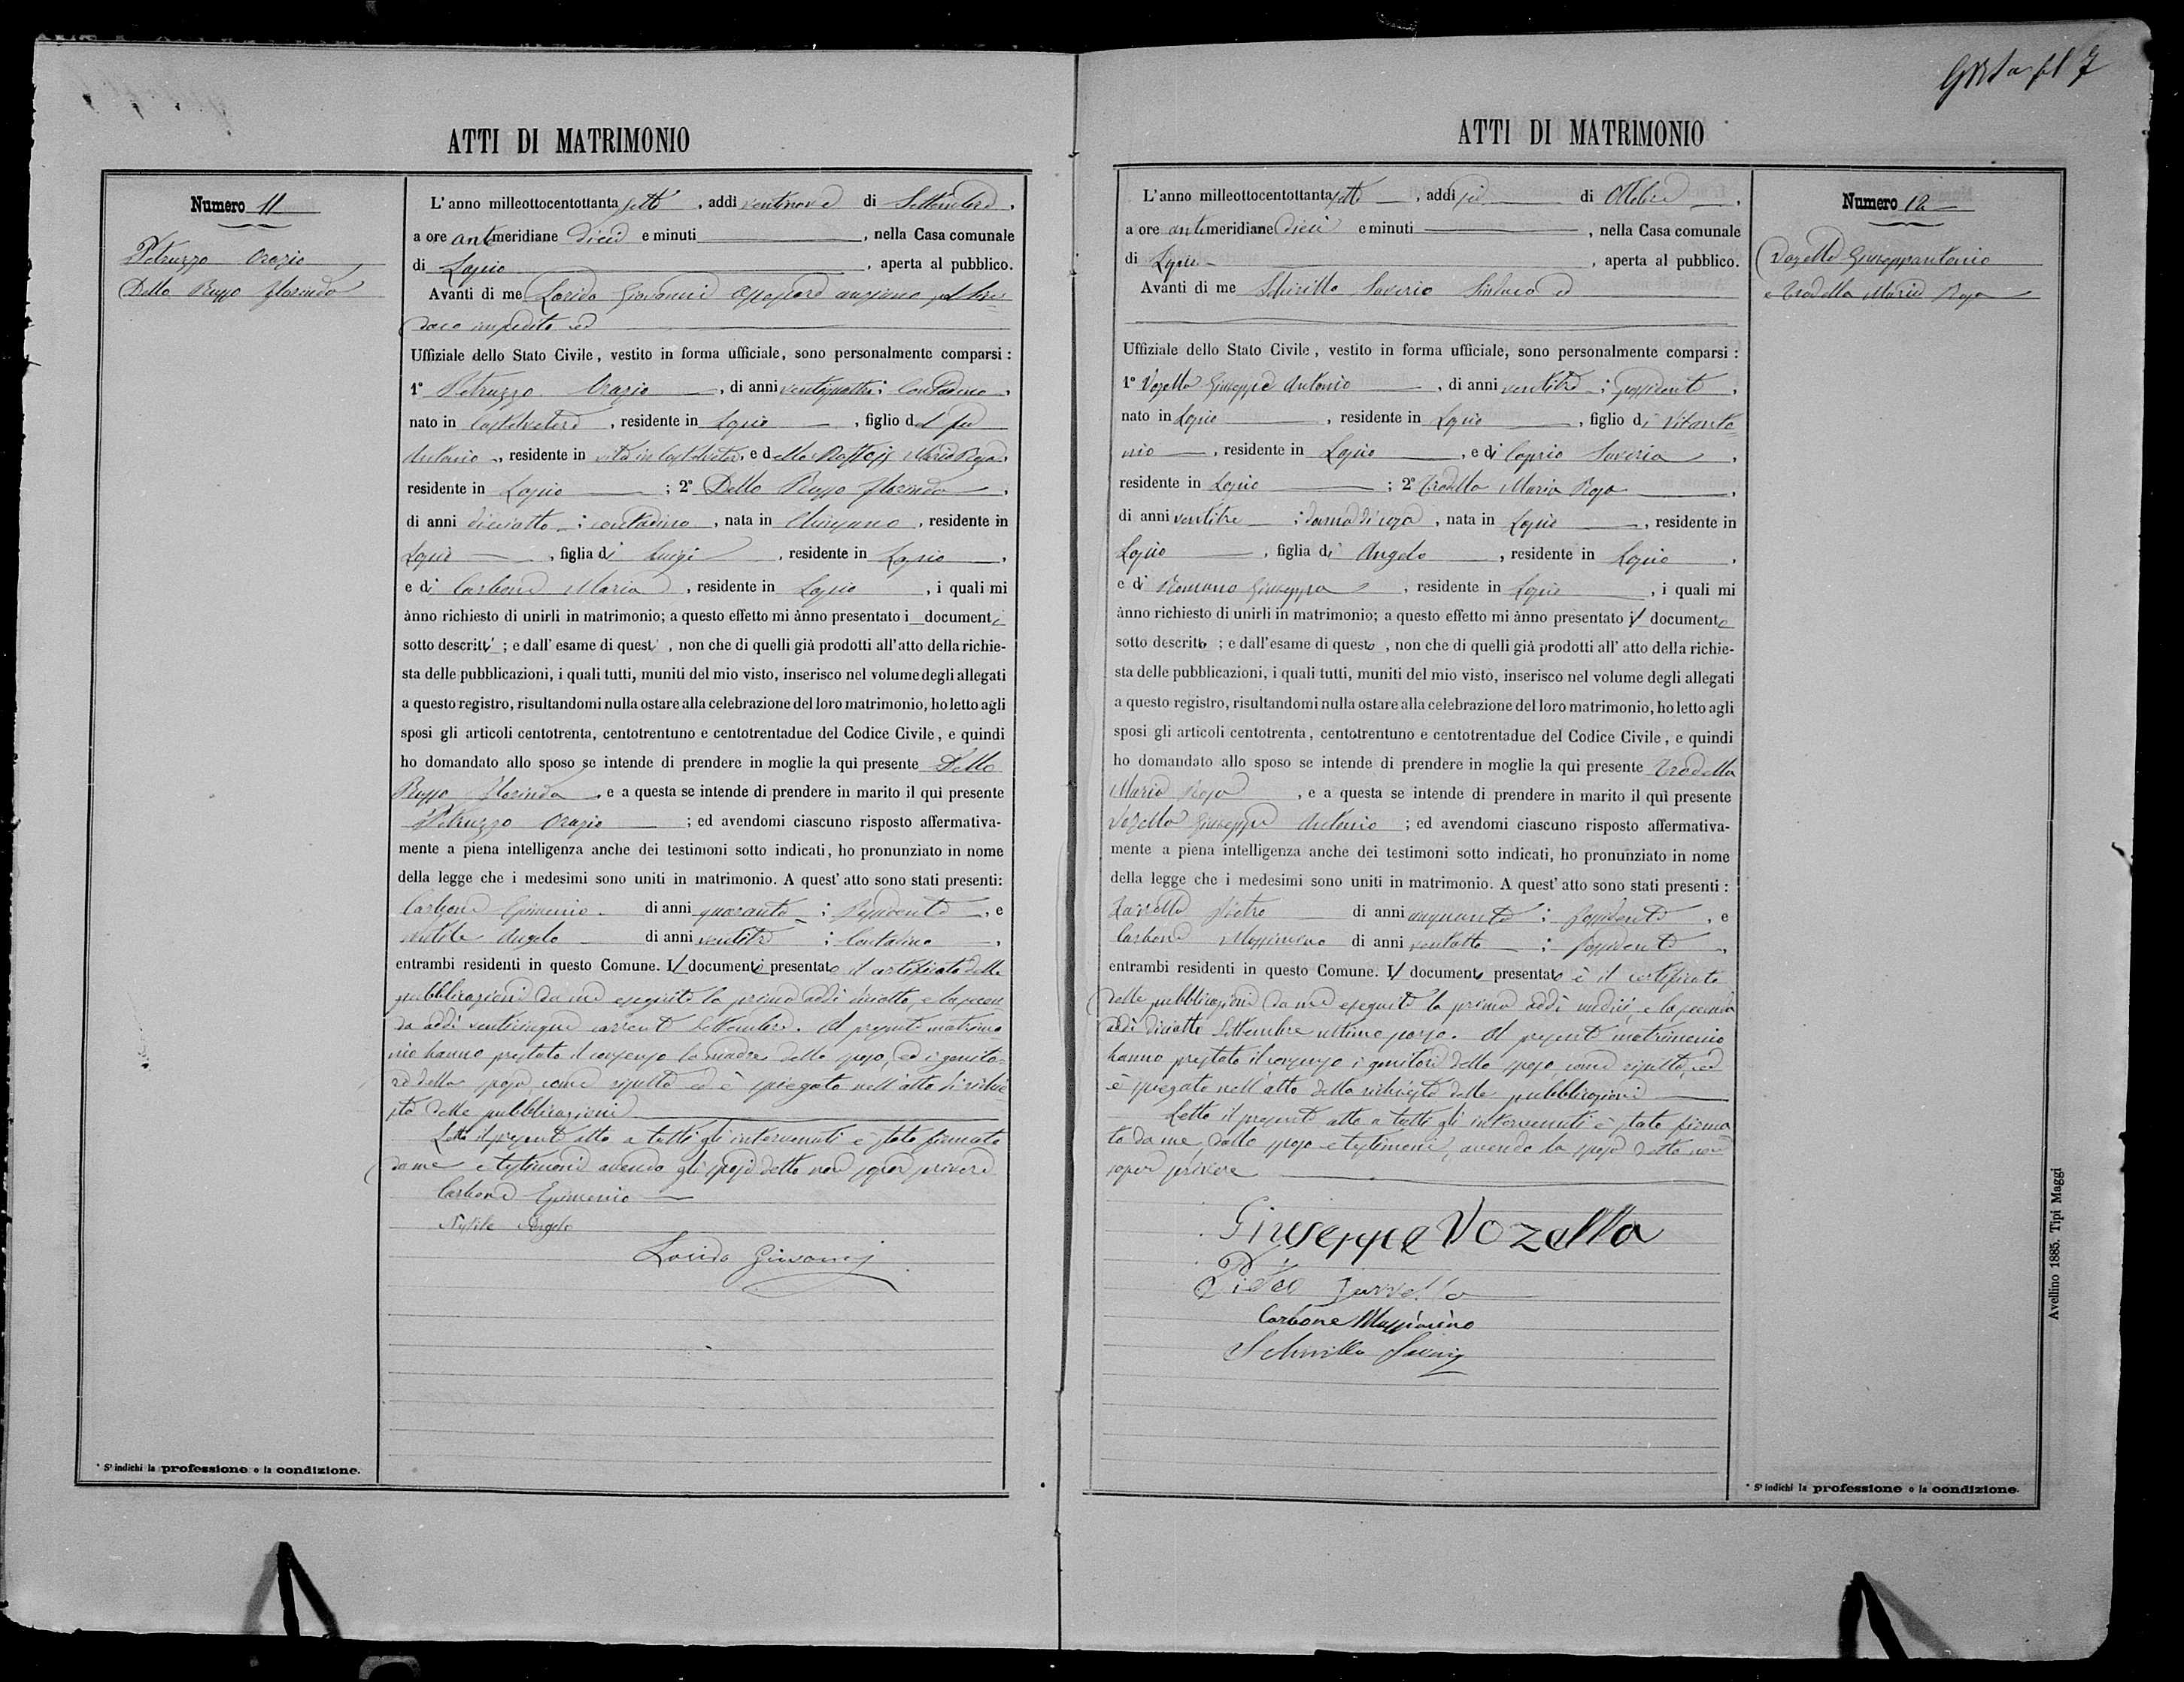 ATTI DI MATRIMONIO
Numero 11
Petruzzo Orazio
Dello Russo Florinda
L'anno milleottocentottanta sette, addi ventinove di Settembre,
a ore antimeridiane dieci e minuti, nella Casa comunale
di Lapio, aperta al pubblico.
Avanti di me Lorido Giovanni Assessore anziano pel Sin=
daco impedito ed
Uffiziale dello Stato Civile, vestito in forma ufficiale, sono personalmente comparsi:
1° Petruzzo Orazio, di anni ventiquattro; contadino,
nato in Castelvetere, residente in Lapio, figlio del fu
Antonio, residente in vita in Castelvetere, e della Maria Rosa,
residente in Lapio; 2° Dello Russo Florinda,
di anni diciotto; contadina, nata in, residente in
Lapio, figlia di Luigi, residente in Lapio,
e di Carbone Maria, residente in Lapio, i quali mi
ànno richiesto di unirli in matrimonio; a questo effetto mi ànno presentato i documenti
sotto descritti; e dall'esame di questi, non che di quelli già prodotti all'atto della richie-
sta delle pubblicazioni, i quali tutti, muniti del mio visto, inserisco nel volume degli allegati
a questo registro, risultandomi nulla ostare alla celebrazione del loro matrimonio, ho letto agli
sposi gli articoli centotrenta, centotrentuno e centotrentadue del Codice Civile, e quindi
ho domandato allo sposo se intende di prendere in moglie la qui presente Dello
Russo Florinda, e a questa se intende di prendere in marito il qui presente
Petruzzo Orazio; ed avendomi ciascuno risposto affermativa-
mente a piena intelligenza anche dei testimoni sotto indicati, ho pronunziato in nome
della legge che i medesimi sono uniti in matrimonio. A quest'atto sono stati presenti:
Carbone Epimenio di anni quaranta; Possidente, e
Nutile Angelo di anni ventitre; Contadino,
entrambi residenti in questo Comune. Il documento presentato è il certificato delle
pubblicazioni da me eseguite la prima addì diciotto, e la secon
da addì venticinque corrente Settembre. Al presente matrimo
nio hanno prestato il consenso la madre dello sposo, ed i genito=
ri della sposa come risulta ed è spiegato nell'atto di richie
sta delle pubblicazioni
Letto il presente atto a tutti gli intervenuti è stato firmato
da me e testimoni avendo gli sposi detto non saper scrivere
Carbone Epimenio
Nutile Angelo
Lorido Giovanni
* Si indichi la professione o la condizione.
7
ATTI DI MATRIMONIO
Numero 12
Vozella Giuseppantonio
e Trodella Maria Rosa
L'anno milleottocentottanta sette, addi sei di Ottobre,
a ore antimeridiane dieci e minuti, nella Casa comunale
di Lapio, aperta al pubblico.
Avanti di me Schirillo Saverio Sindaco ed
Uffiziale dello Stato Civile, vestito in forma ufficiale, sono personalmente comparsi:
1° Vozella Giuseppe Antonio, di anni ventitre; possidente,
nato in Lapio, residente in Lapio, figlio di Vitanto=
nio, residente in Lapio, e di Caprio Saveria,
residente in Lapio; 2° Trodella Maria Rosa,
di anni ventitre; donna di casa, nata in Lapio, residente in
Lapio, figlia di Angelo, residente in Lapio,
e di Romano Giuseppa, residente in Lapio, i quali mi
ànno richiesto di unirli in matrimonio; a questo effetto mi ànno presentato il documento
sotto descritto; e dall'esame di questo, non che di quelli già prodotti all'atto della richie-
sta delle pubblicazioni, i quali tutti, muniti del mio visto, inserisco nel volume degli allegati
a questo registro, risultandomi nulla ostare alla celebrazione del loro matrimonio, ho letto agli
sposi gli articoli centotrenta, centotrentuno e centotrentadue del Codice Civile, e quindi
ho domandato allo sposo se intende di prendere in moglie la qui presente Trodella
Maria Rosa, e a questa se intende di prendere in marito il qui presente
Vozella Giuseppe Antonio; ed avendomi ciascuno risposto affermativa-
mente a piena intelligenza anche dei testimoni sotto indicati, ho pronunziato in nome
della legge che i medesimi sono uniti in matrimonio. A quest'atto sono stati presenti:
Zarrella Pietro di anni cinquanta; possidente, e
Carbone Massimino di anni ventotto; possidente,
entrambi residenti in questo Comune. Il documento presentato è il certificato
delle pubblicazioni da me eseguite la prima addì undici, e la seconda
addì diciotto Settembre ultimo passo. Al presente matrimonio
hanno prestato il consenso i genitori dello sposo come risulta, ed
è spiegato nell'atto della richiesta delle pubblicazioni
Letto il presente atto a tutti gli intervenuti è stato firma
to da me, dallo sposo e testimoni, avendo la sposa detto non
saper scrivere
Giuseppe Vozella
Pietro Zarrella
Carbone Massimino
Schirillo Saverio
* Si indichi la professione o la condizione.
Avellino 1885. Tipi Maggi